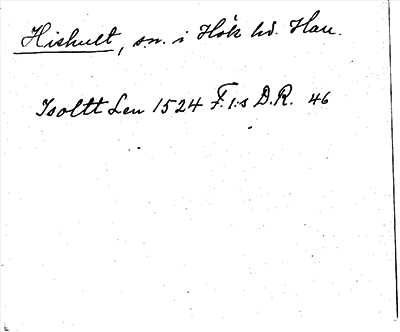 Hishult, sn. i Höks hd. Hall.
Isoltt Len 1524 F.I:s D.R. 46